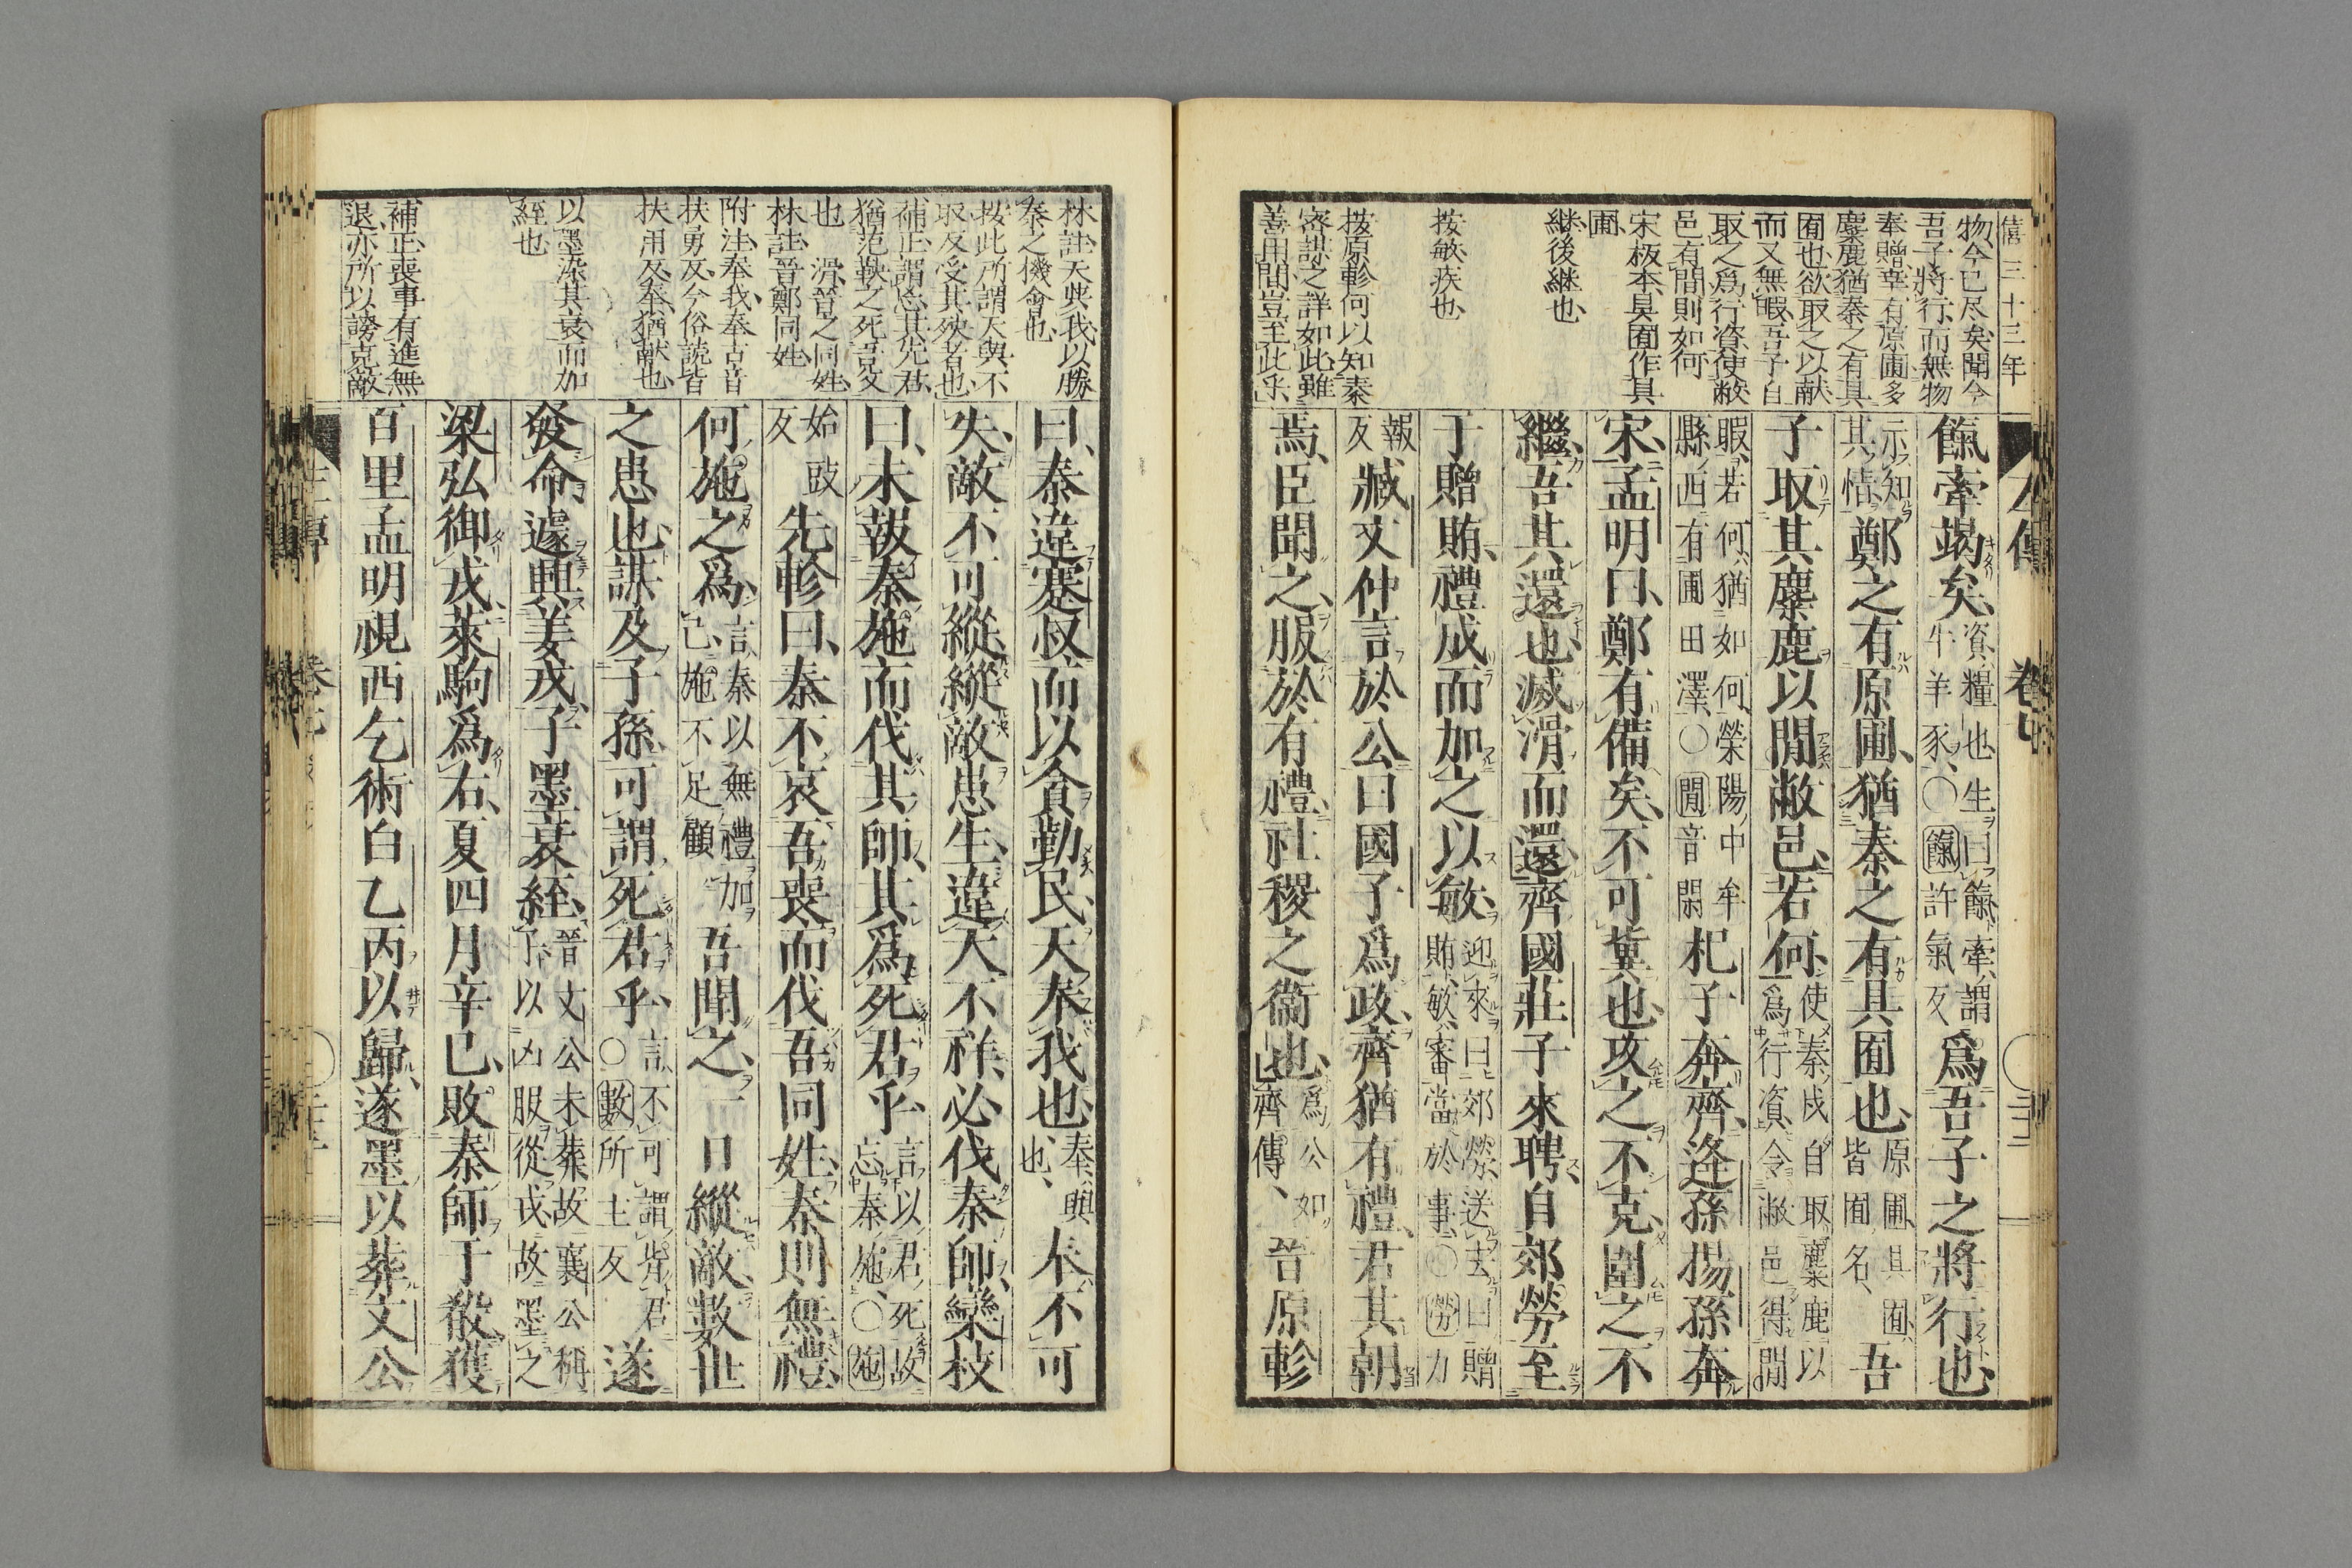 僖三十三年
物、今已尽矣、聞今
吾子將行、而無物
奉贈、幸有原圃多
麋鹿、猶秦之有具
囿也、欲取之以献、
而又無暇、吾子自
取之爲行資、使敝
邑有間則如何
宋板本具囿作具
圃、
継、後継也、
按敏、疾也、
按原軫何以知秦
密謀之詳如此、雖
善用間、豈至此乎、
餼牽竭矣、資、糧也、生曰餼、牽、謂
牛羊豕、〇餼許氣反爲吾子之將行也、
示知
其情鄭之有原圃、猶秦之有具囿也、原圃、具囿、
皆囿名、吾
子取其麋鹿、以閒敝邑、若何、使秦戍自取麋鹿、以
爲行資、令敝邑得閒
暇、若何、猶如何、滎陽中牟
縣西有圃田澤、〇閒音閑杞子奔齊、逢孫揚孫奔
宋、孟明曰、鄭有備矣、不可冀也、攻之不克、圍之不
繼、吾其還也、滅滑而還、齊國莊子來聘、自郊勞至
于贈賄、禮成而加之以敏、迎來曰郊勞、送去曰贈
賄、敏、審當於事、〇勞力
報
反臧文仲言於公曰、國子爲政、齊猶有禮、君其朝
焉、臣聞之、服於有禮、社稷之衞也、爲公如
齊傳、晉原軫
林註、天與我以勝
秦之機會也、
按此所謂天與不
取、反受其殃者也、
補正、謂忘其先君、
猶范鞅之死吾父
也、滑、晉之同姓、
林註、晉鄭同姓、
附注、奉我、奉古音
扶勇反、今俗読皆
扶用反、奉、猶献也、
以墨染其衰、而加
絰也、
補正、喪事有進無
退、亦所以謗克敵
曰、秦違蹇叔、而以貪勤民、天奉我也、奉、與
也、奉不可
失、敵不可縱、縱敵患生、違天不祥、必伐秦師、欒枝
曰、未報秦施、而伐其師、其爲死君乎、言以君死故
忘秦施、〇施
始豉
反先軫曰、秦不哀吾喪、而伐吾同姓、秦則無禮、
何施之爲、言秦以無禮加
己、施不足顧吾聞之、一日縱敵、數世
之患也、謀及子孫、可謂死君乎、言不可謂背君
〇數所主反遂
發命、遽興姜戎、子墨衰絰、晉文公未葬、故襄公稱
子、以凶服從戎、故墨之
梁弘御戎、萊駒爲右、夏四月辛巳、敗秦師于殽、獲
百里孟明視西乞術白乙丙以歸、遂墨以葬文公